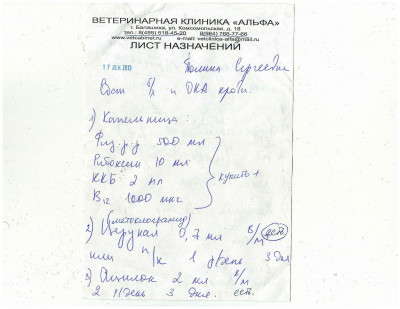 ВЕТЕРИНАРНАЯ КЛИНИКА «АЛЬФА»
г. Балашиха, ул. Комсомольская, д. 18
тел.: 8(495) 518-45-20 8(964) 788-77-66
www.vetcabinet.ru e-mail: vetclinica-alfa@mail.ru
ЛИСТ НАЗНАЧЕНИЙ
17 ДЕК 2013
Полина Сергеевна
б/х и ОКА крови.
1) Капельница:
Физ. р-р 500 мл
Рибоксин 10 мл
ККБ 2 мл
B12 1000 мкг
купить +
(метоклопрамид)
2) Церукал 0,7 мл в/м есть
или п/к 1 р/день 3 дня
3) 2 мл в/м
2 р/день 3 дня. есть.